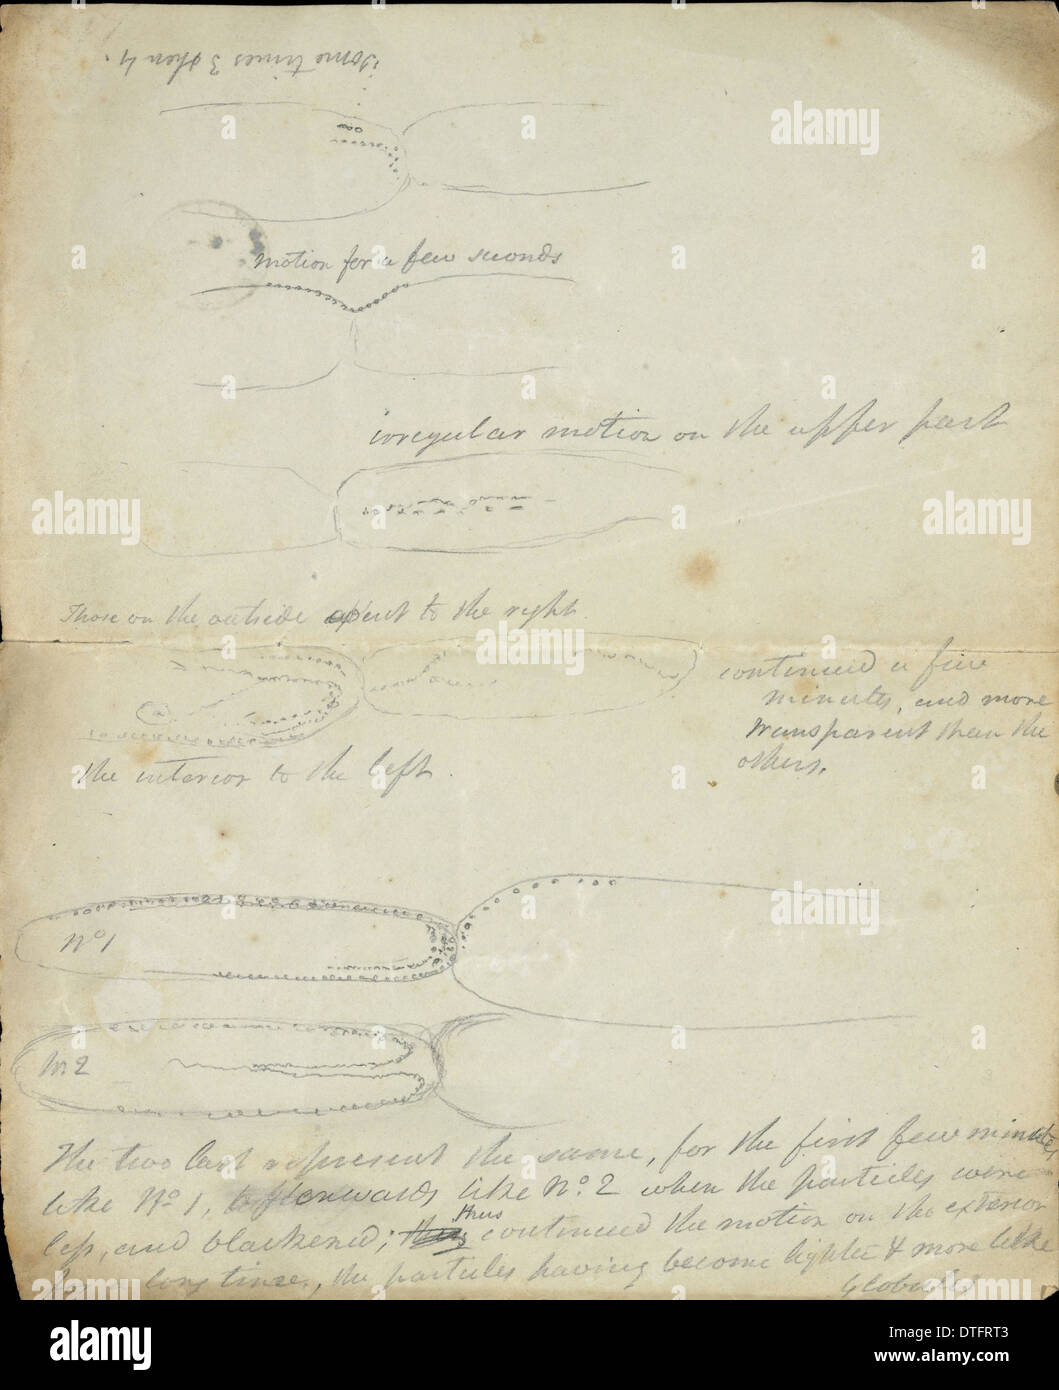 Some times 3 then 4.
Motion for a few seconds
irregular motion on the upper part
Those on the outside went to the right
continued a few
minutes, and more
transparent than the
others.
the interior to the left.
No 1
No 2
The two last represent the same, for the first few minutes
like No. 1, afterwards like No. 2 when the particles were
less, and blackened; thus continued the motion on the exterior
for a long time, the particles having become lighter & more like
Globules
alamy
Image ID: DTFRT3
www.alamy.com